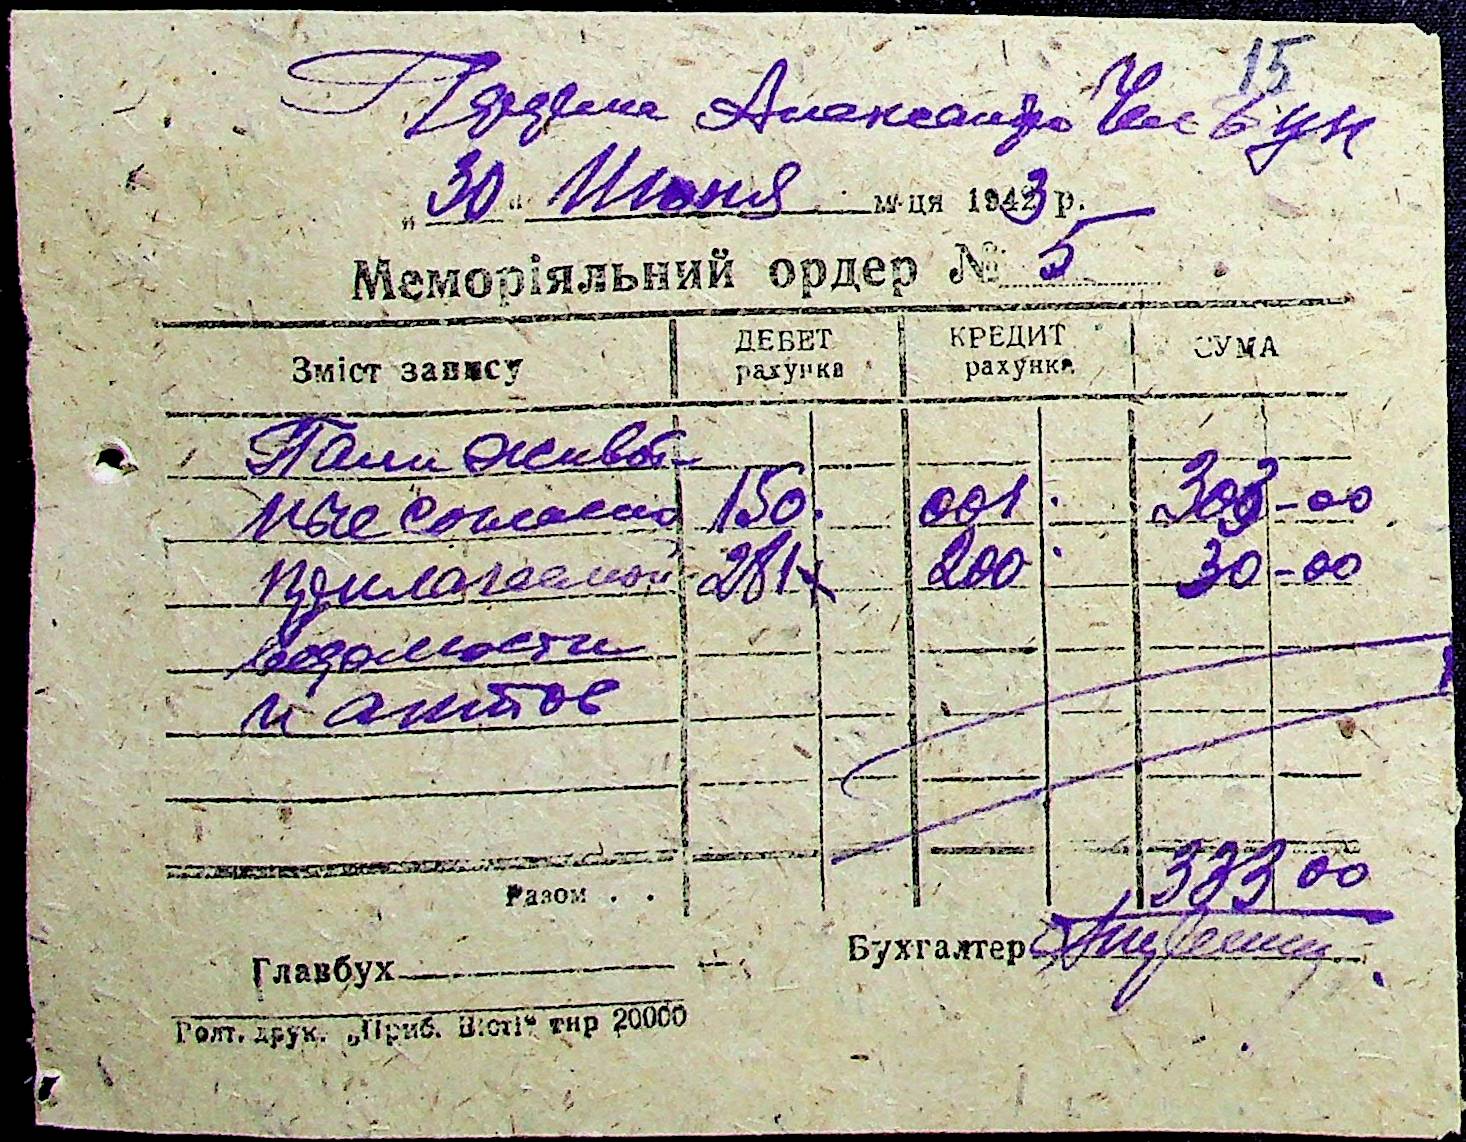 15
Александро
„ 30 " Июня м-ця 1943 р.
Меморіяльний ордер № 5
Зміст запису ДЕБЕТ рахунка КРЕДИТ рахунка СУМА
Пали живот-
ные согласно 150. 001. 303-00
прилагаемой 281 200 30-00
ведомости
и актов
Разом . . 333 00
Главбух Бухгалтер
Голт. друк. „Приб. Вісті" тир 20000